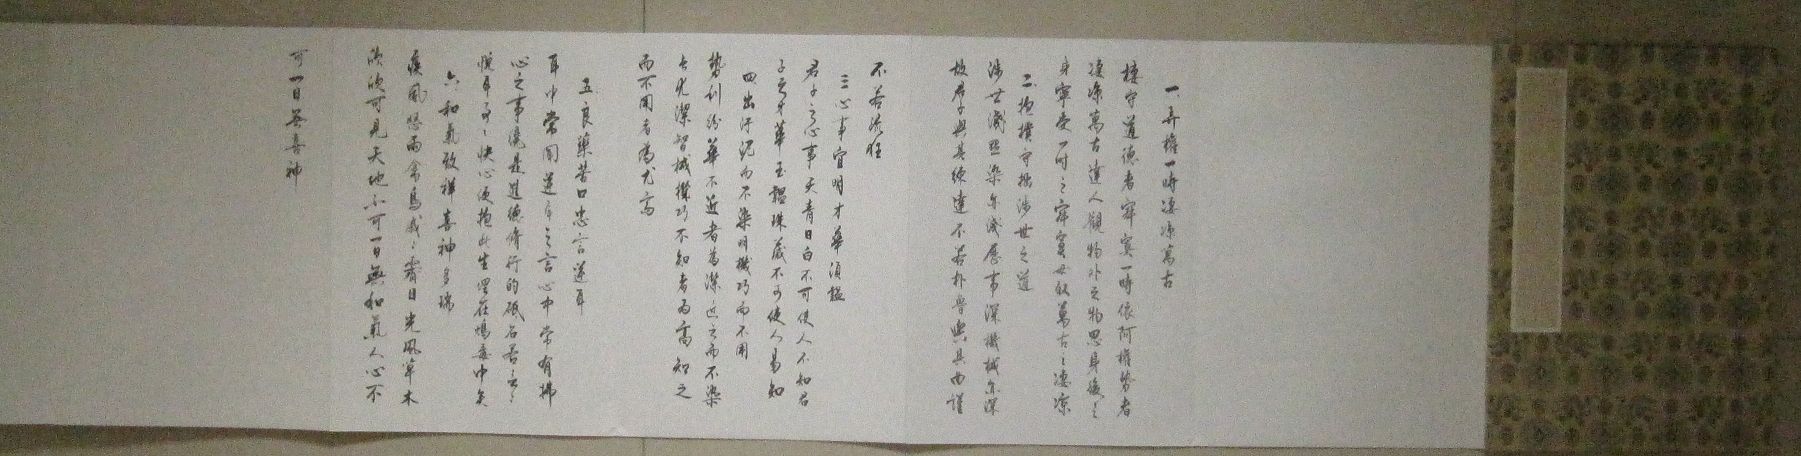 一弄權一時凄凉萬古
棲守道德者寂寞一時依阿權势者
凄凉萬古達人觀物外之物思身後之
身寧受一时之寂寞毋取萬古之凄凉
二抱撲守拙涉世之道
涉世淺點染亦淺歷事深機械亦深
故君子與其練達不若朴魯與其曲謹
不若疏狂
三心事宜明才華須韫
君子之心事天青日白不可使人不知君
子之才華玉韞珠藏不可使人易知
四出汙泥而不染明機巧而不用
势利纷華不近者為潔近之而不染
者尤潔智械機巧不知者為高知之
而不用者為尤高
五良藥苦口忠言逆耳
耳中常聞逆耳之言心中常有拂
心之事纔是進德脩行的砥石若言言
悅耳事事快心便把此生埋在鴆毒中矣
六和氣致祥喜神多瑞
疾風怒雨禽鳥戚戚霽日光風草木
欣欣可見天地不可一日無和氣人心不
可一日無喜神